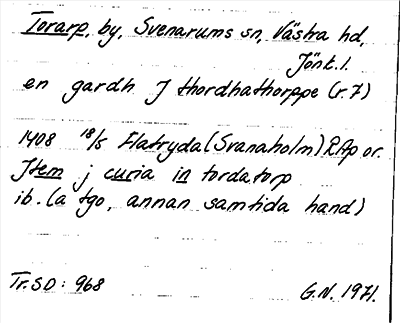 Torarp, by, Svenarums sn, Västra hd,
Jönk. l.
en gardh J thordhathorppe (r. 7)
1408 18/5 Flatryda (Svanaholm) RAp or.
Jtem j curia in torda torp
ib. (a tgo, annan samtida hand)
Tr. SD: 968
G.N. 1971.